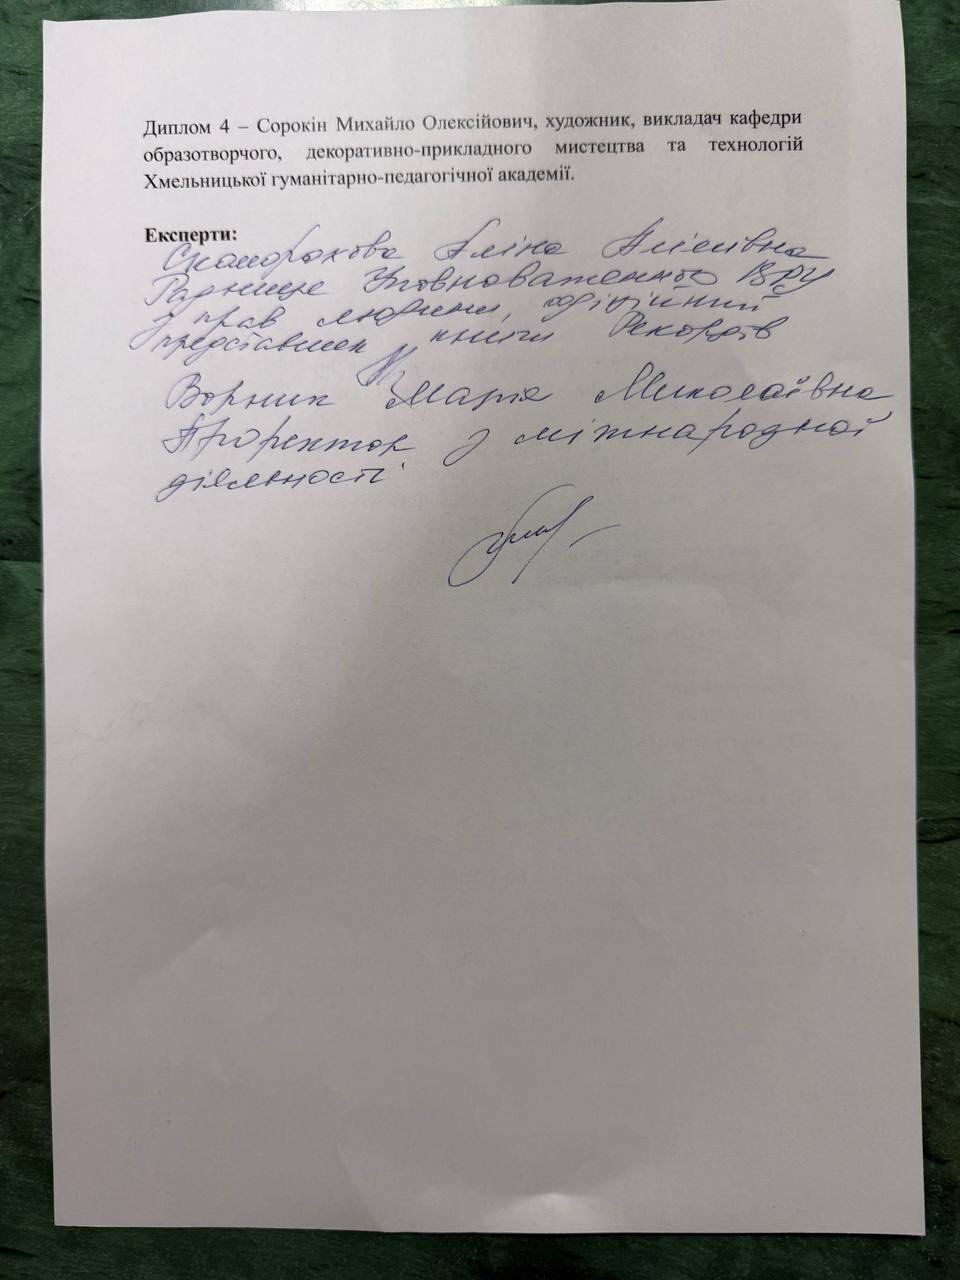 Диплом 4 – Сорокін Михайло Олексійович, художник, викладач кафедри
образотворчого, декоративно-прикладного мистецтва та технологій
Хмельницької гуманітарно-педагогічної академії.
Експерти:
Скоморохова Аліна
Радниця Уповноваженого ВРУ
з прав людини, офіційний
представник книги Рекордів
Ворник Марія Миколаївна
Проректор з міжнародної
діяльності